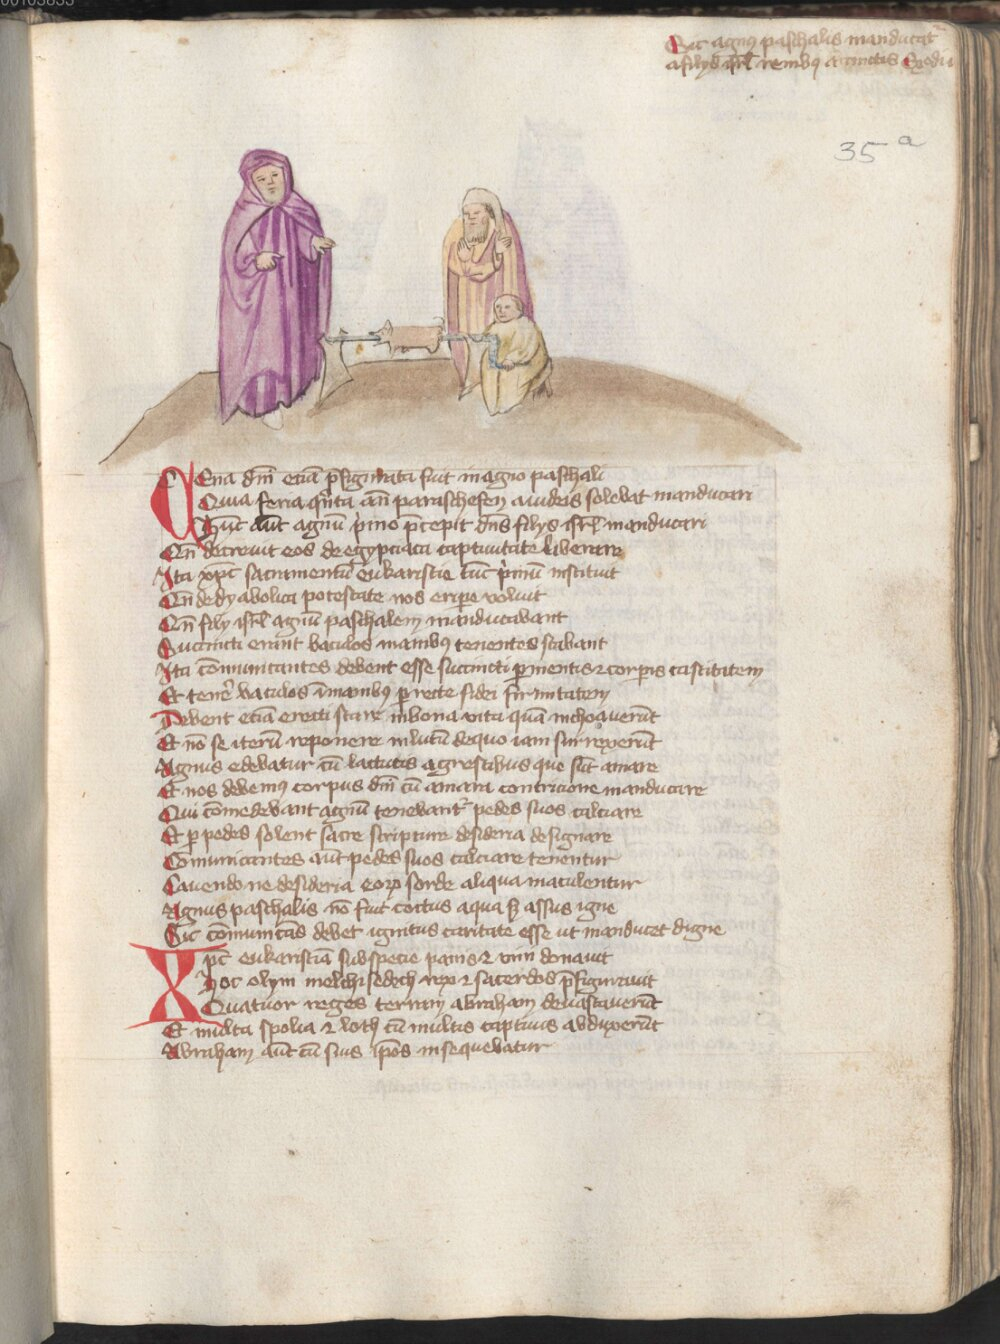 00103835
Hic agnus paschalis manducat᷑
a filijs isrl̄ renibꝫ accinctis Exodi
35 a
CEna dn̄i eciā p̄figurata fuit in agno paschali
Quia feria qn̄ta an̄ parascheſen a iudeis solebat manducari
Hunc aut̄ agnū p̄mo p̄cepit dn̄s filijs isrl̄ manducari
Qn̄ decreuit eos de egypciaca captiuitate liberare
Ita xp̄c sacramentū eukaristie tūc p̄mū instituit
Qn̄ de dyabolica potestate nos eripe voluit
Qn̄ filij isrl̄ agnū paschalem manducabant
Succincti erant baculos manibꝫ tenentes stabant
Ita cōmunicantes debent esse succincti ꝑ mentis ⁊ corpis castitatem
Et tene᷑ baculos ī manibꝫ ꝑ recte fidei firmitatem
Debent eciā erecti stare in bona vita quā inchoauerūt
Et nō se iterū reponere in lutū de quo iam surrexerūt
Agnus edebatur cū lactucis agrestibus que sūt amare
Et nos debemꝫ corpus dn̄i cū amara contricione manducare
Qui cōmedebant agnū tenebant᷑ pedes suos calciare
Et ꝑ pedes solent sacre scripture desideria designare
Comunicantes aūt pedes suos calciare tenentur
Cauendo ne desideria eoꝝ sorde aliqua maculentur
Agnus paschalis nō fuit coctus aqua sꝫ assus igne
Sic comunicās debet ignitus caritate esse ut manducet digne
Xp̄c eukaristiā sub specie panis ⁊ vini donauit
Hoc olym melchisedech rex ⁊ sacerdos p̄figurauit
Quatuor reges terram abraham deuastauerūt
Et multa spolia ⁊ loth cū multis captiuis abduxerūt
Abraham aūt cū suis ip̄os insequebatur